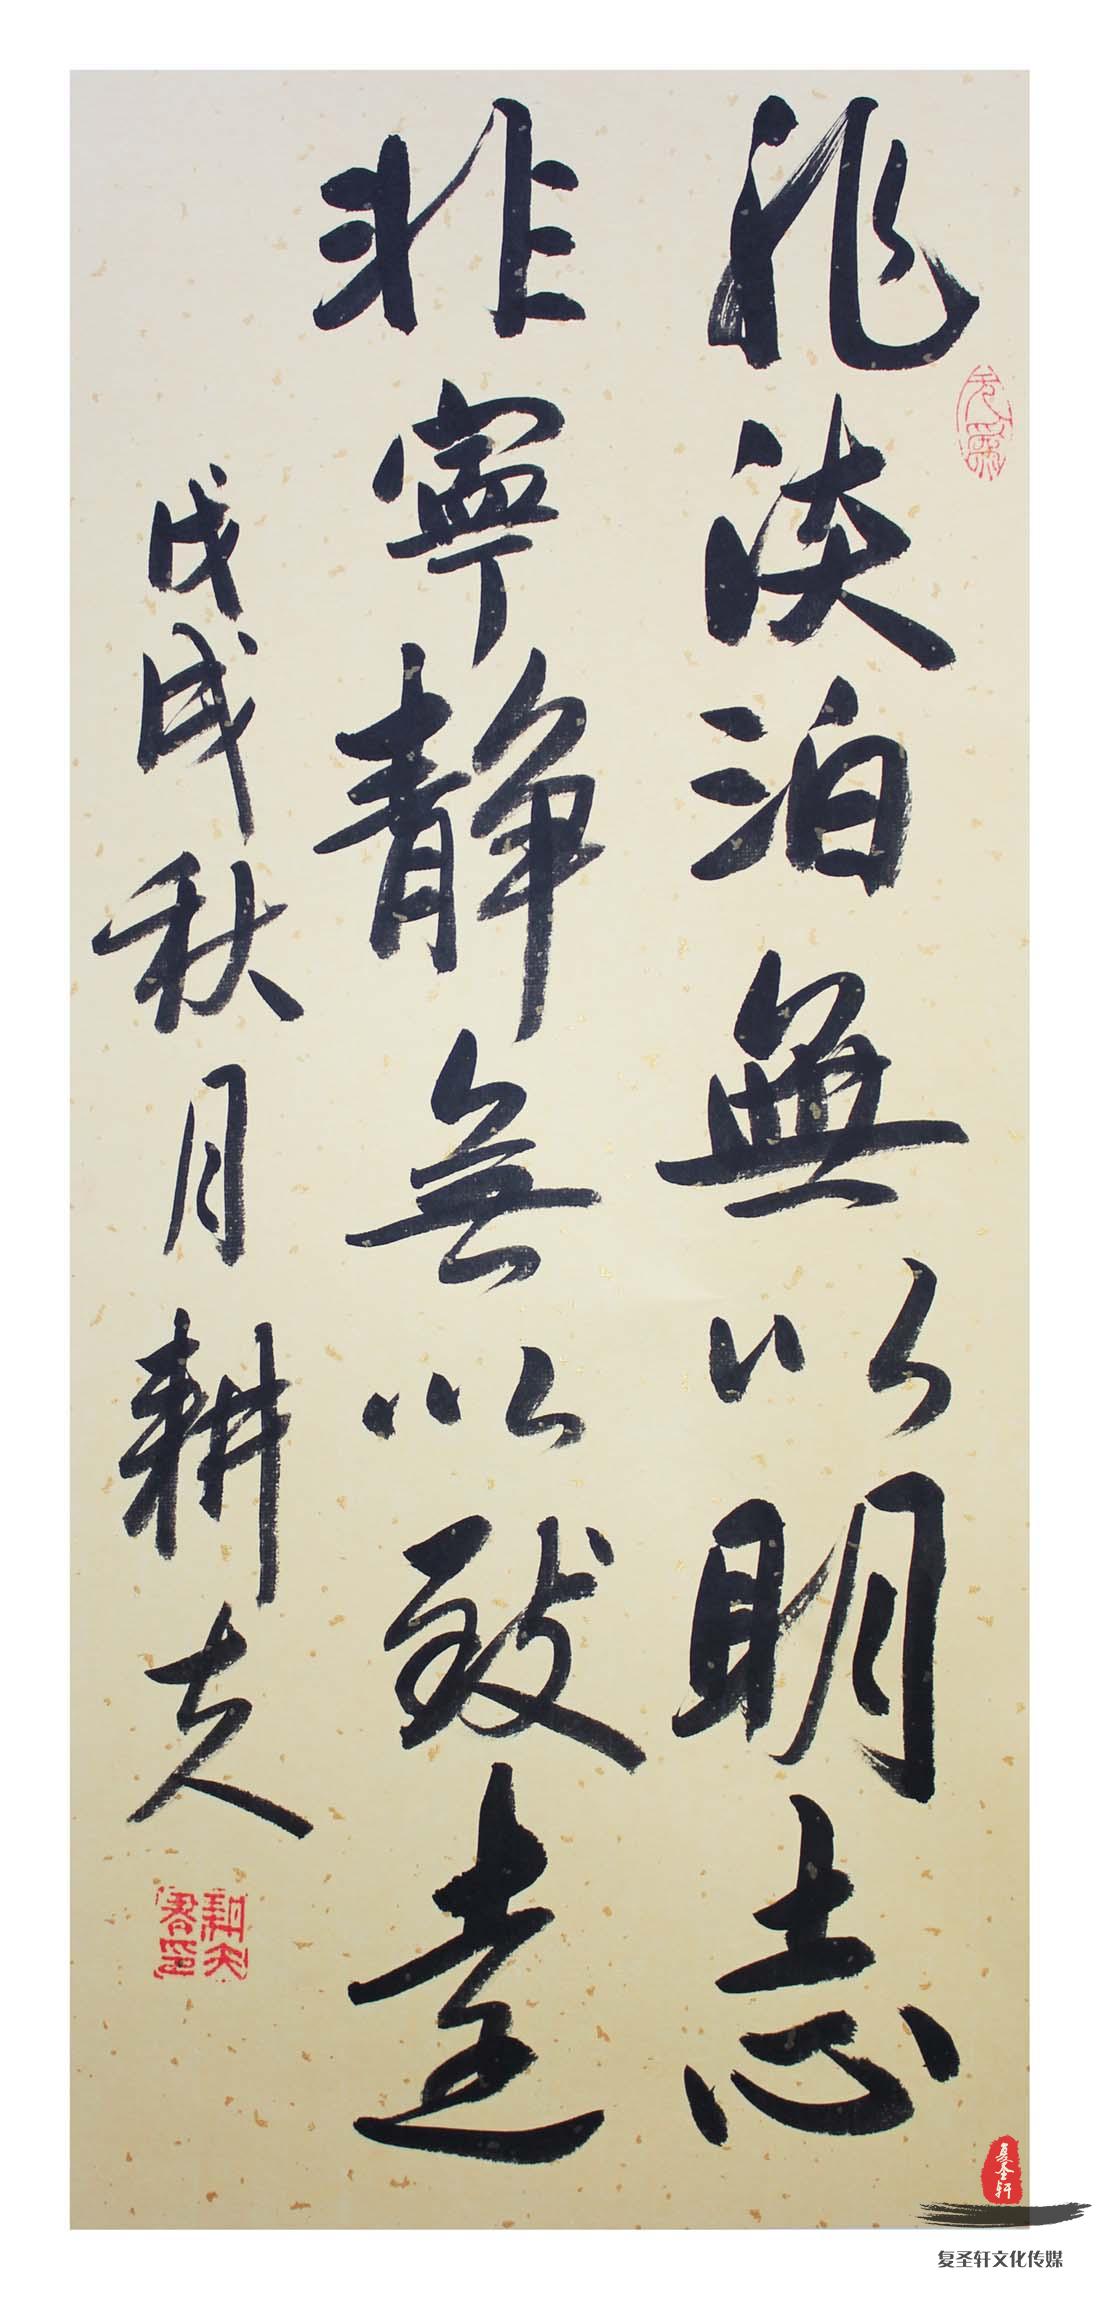 非淡泊無以明志
非寧靜無以致遠
戊戌秋月耕夫
复圣轩
复圣轩文化传媒